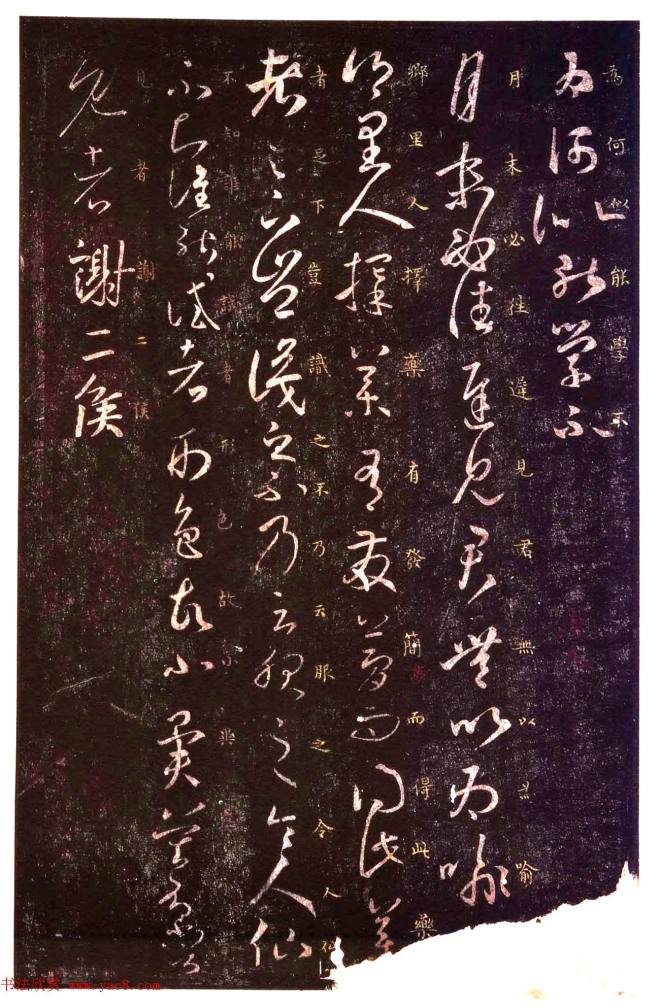 為何似能學不
為何似能學不
月末必往遲見君無以為喻
月末必往遲見君無以為喻
鄉里人擇藥有發簡而得此藥
鄉里人擇藥有發夢而得此藥
者足下豈識之不乃云服之令人仙
者足下豈識之不乃云服之令人仙
不知誰能試者形色故小
不知誰能試者形色故小異莫與嘗
見者謝二侯
見者謝二侯
书法欣赏 www.yac8.com